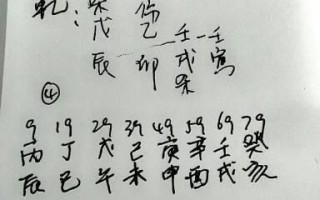 杀 伤
乾： 戊 乙 壬 壬
辰 卯 戌 寅
杀
④
9 19 29 39 49 59 69 79
丙 丁 戊 己 庚 辛 壬 癸
辰 巳 午 未 申 酉 戌 亥